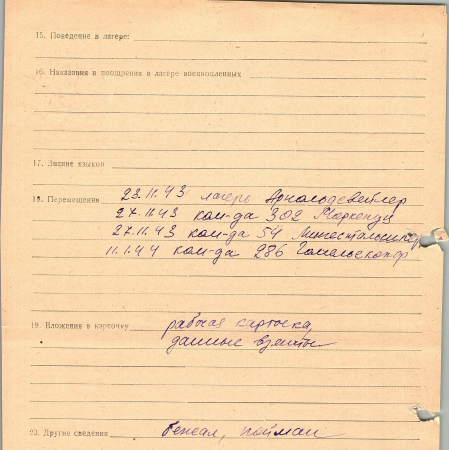 15. Поведение в лагере:
16. Наказания и поощрения в лагере военнопленных
17. Знание языков
18. Перемещения 23.11.43 лагерь Арнольдсвейлер
27.11.43 ком-да 302
27.11.43 ком-да 54
11.1.44 ком-да 286
19. Вложения в карточку рабочая карточка,
данные взяты
20. Другие сведения бежал, пойман